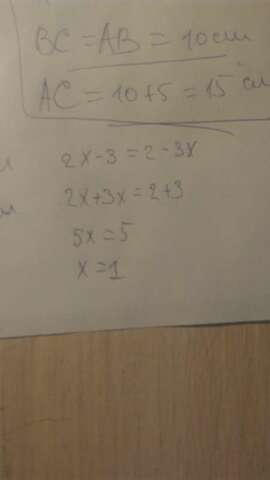 BC = AB = 10 см
AC = 10 + 5 = 15 см
2x - 3 = 2 - 3x
2x + 3x = 2 + 3
5x = 5
x = 1